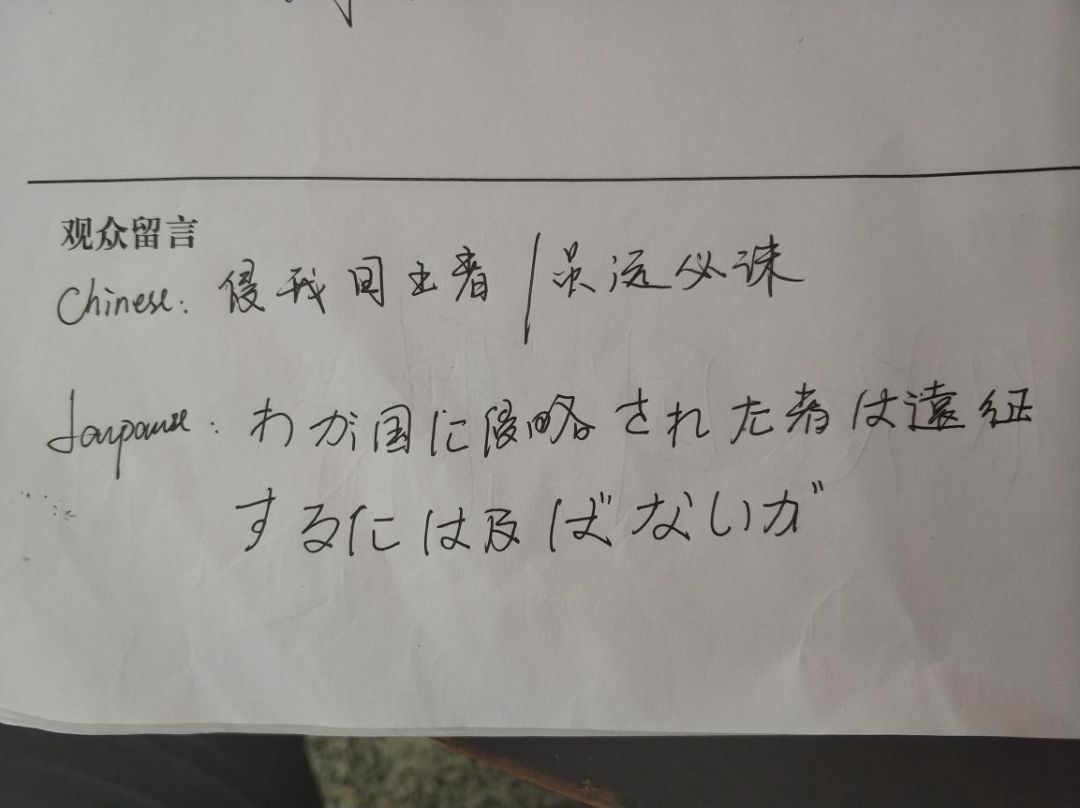 观众留言
Chinese: 侵我国土者/虽远必诛
Jarpanse: わが国に侵略された者は遠征
するには及ばないが